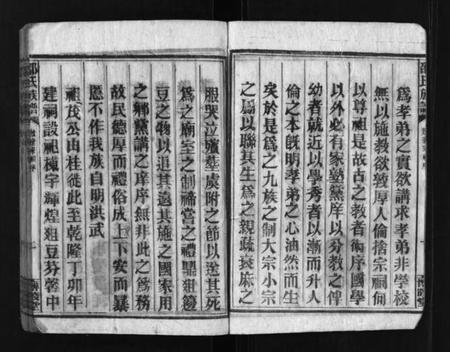 邵氏族譜
為孝弟之實欲講求孝弟非學校
無以施教欲敦厚人倫捨宗祠何
以尊祖是故古之教者術序國學
以外必有家塾黨庠以分教之俾
幼者就近以學秀者以漸而升人
倫之本既明孝弟之心油然而生
矣於是為之九族之制大宗小宗
之屬以聯其生為之親疏衰麻之
服哭泣殯葬虞附之節以送其死
為之廟室之制禘嘗之禮鼎俎籩
豆之物以追其遠其施之國家用
之鄉黨講之庠序無非此之為務
故民德厚而禮俗成上下安而暴
慝不作我族自明洪武
祖茂公由桂徙此至乾隆丁卯年
建祠設祖棟宇輝煌俎豆芬馨中
邵氏族譜